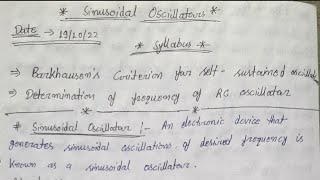 * Sinusoidal Oscillators *
Date → 19/10/22
* Syllabus *
⇒ Barkhausen's Criterion for self-sustained oscillato
⇒ Determination of frequency of RC oscillator
* Sinusoidal Oscillator :- An electronic device that
generates sinusoidal oscillations of desired frequency is
known as a sinusoidal oscillator.